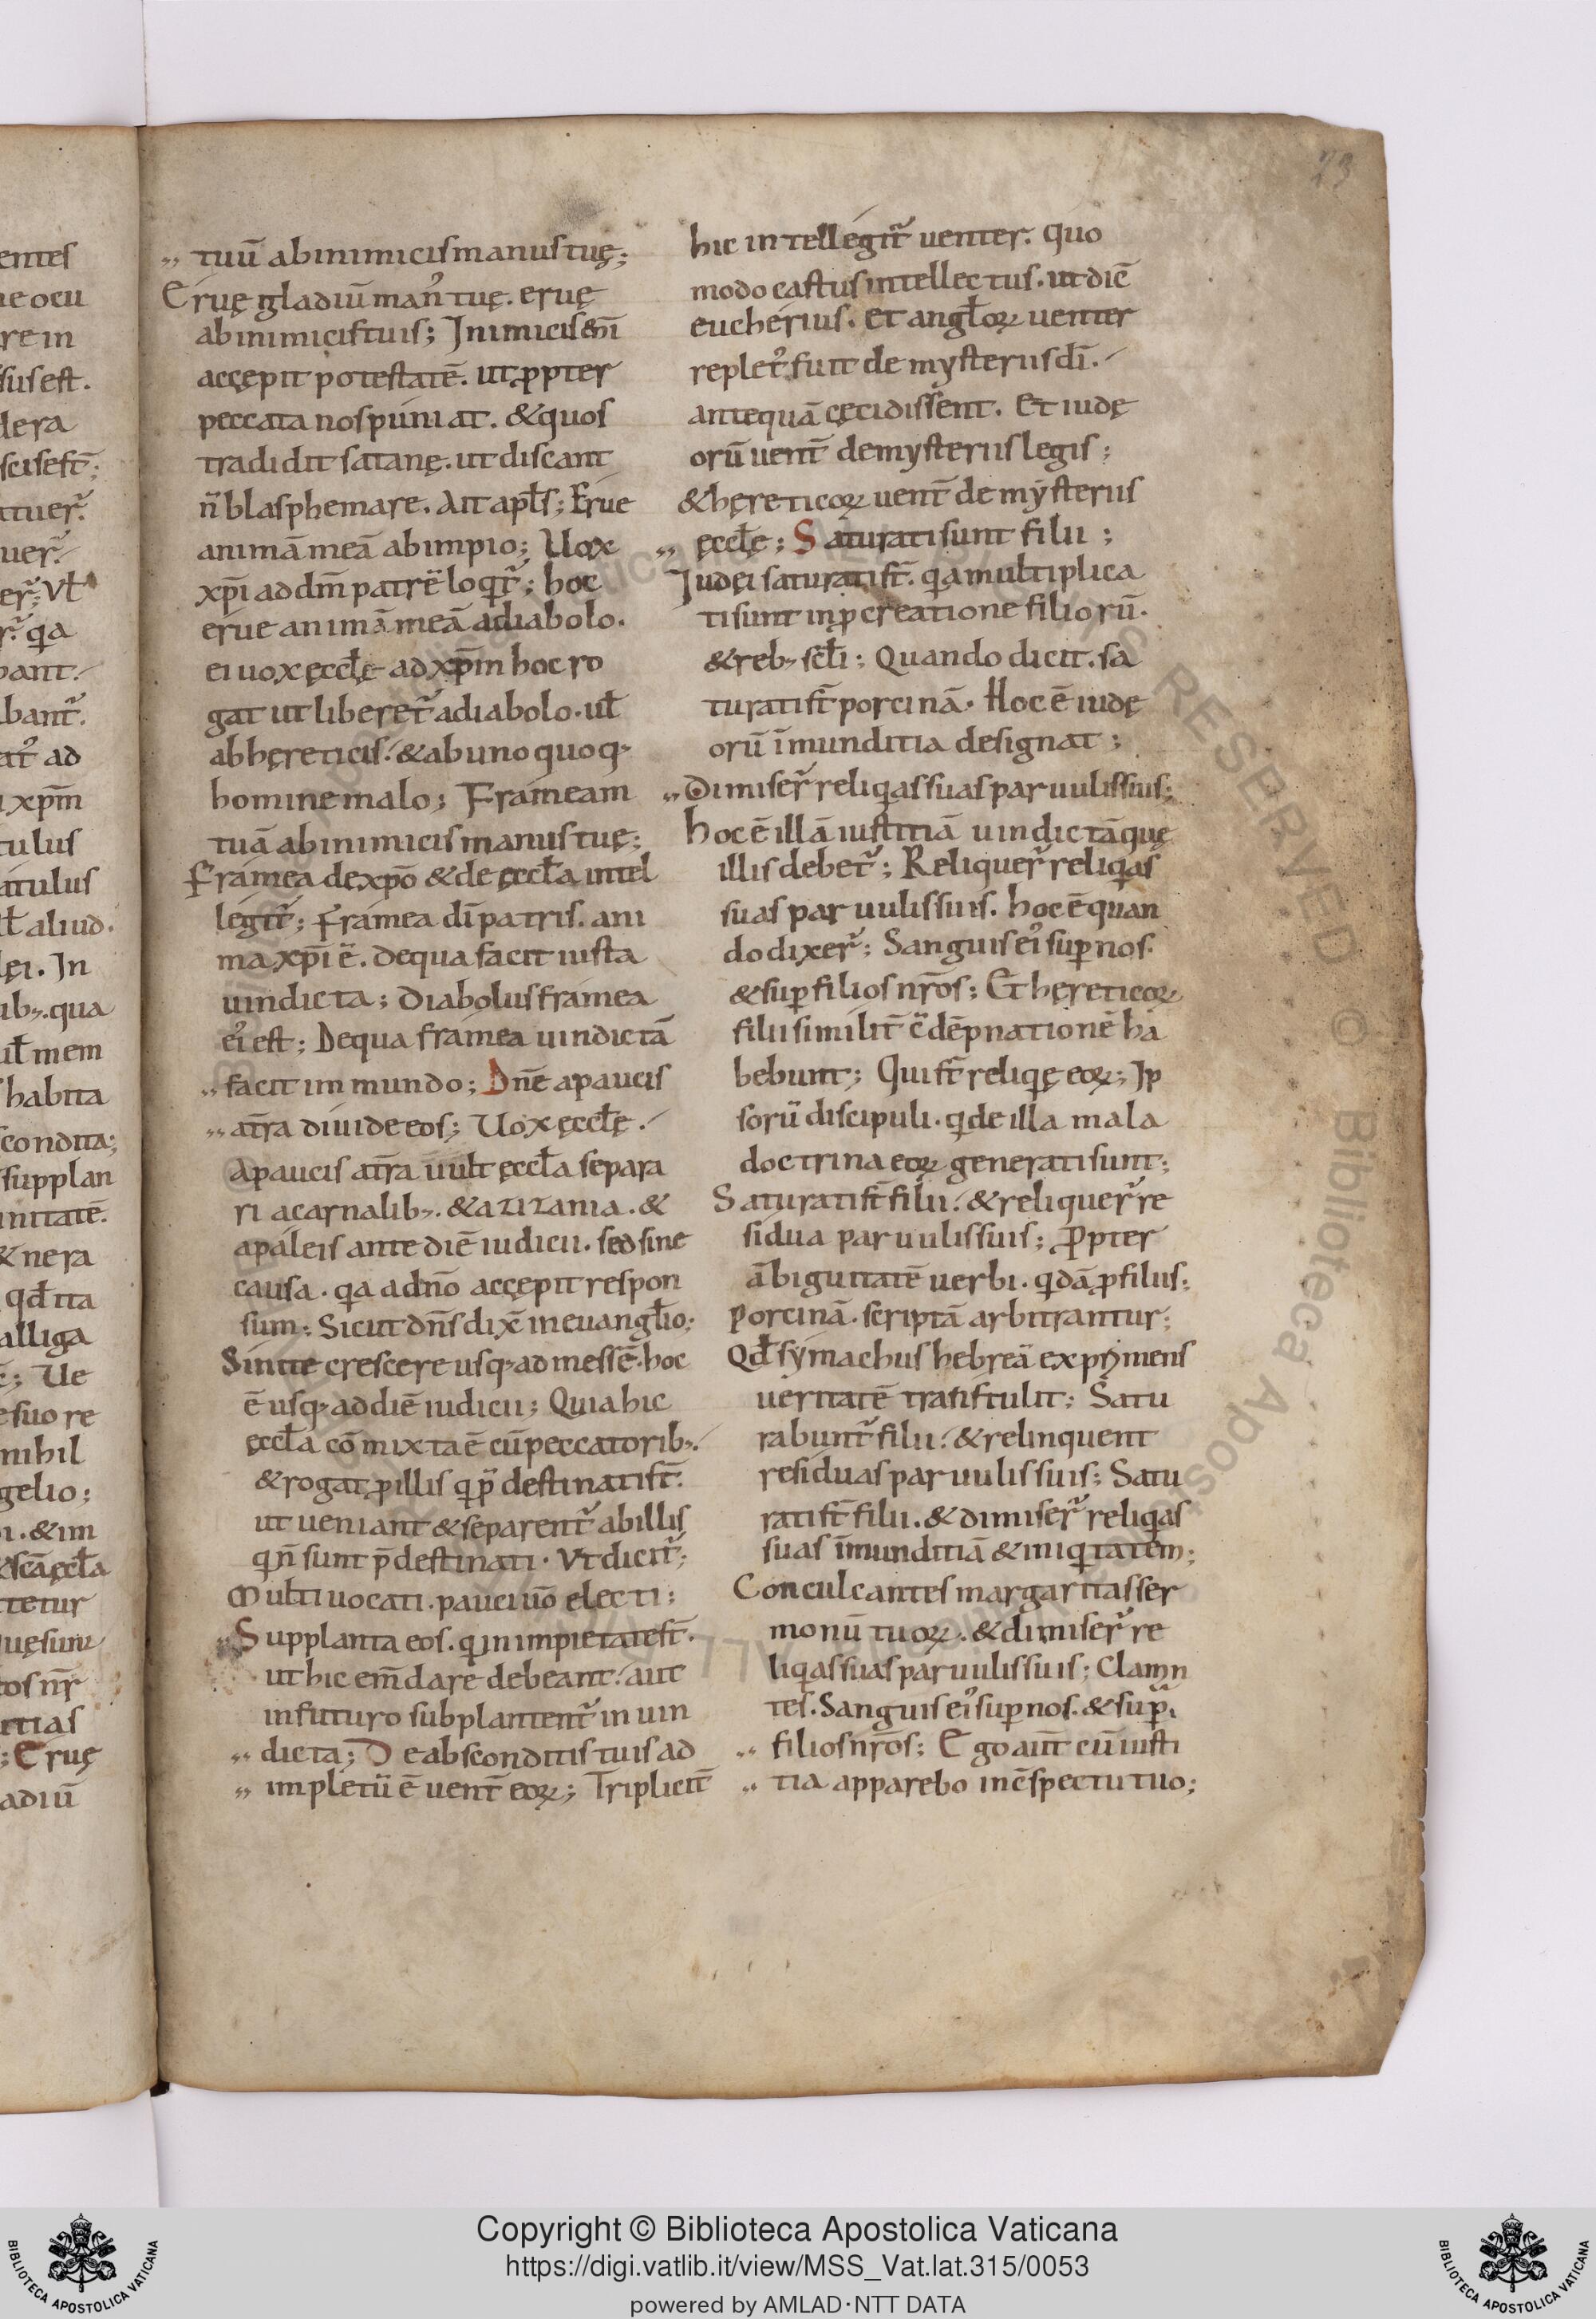 23
entes
ne ocu
re in
sus est.
dera
scis est̄;
atuer̃.
uer̃.
er̃; Vł
r̃. qa
bant.
banť.
ad
xp̄m
tulus
atulus
ł aliud.
lęi. In
ib;. qua
uł mem
habita
scondita;
supplan
unitatē.
& nera
qđ ita
alliga
Ue
esuo re
nihil
gelio;
i. & im
& scā ęccła
tetur
quęsunt
tos nr̄
; Eruę
adiū
„ tuū ab inimicis manus tuę;
Eruę gladiū man' tuę. eruę
ab inimicis tuis; Inimicis em̄
accępit potestatē. ut ppter
peccata nos puniat. & quos
tradidit satanę. ut discant
n̄ blasphemare. Ait apłs; Erue
animā meā ab impio; Uox
xp̄i ad dm̄ patrē loqr̃; hoc
erue animā meā a diabolo.
ei uox ęccłę ad xp̄m hoc ro
gat ut liberet̃ a diabolo. uł
ab hęreticis. & ab uno quoq;
homine malo; Frameam
tuā ab inimicis manus tuę;
Framea de xp̄o & de ęccła intel
legit̃; Framea dī patris. ani
ma xp̄i ē. de qua facit iusta
uindicta; Diabolus framea
ei' est; De qua framea uindictā
„ facit im mundo; Dn̄e a paucis
„ at̄ra diuide eos; Uox ęccłę.
A paucis at̄ra uult ęccła separa
ri a carnalib;. & a zizania. &
a paleis ante diē iudicii. sed sine
causa. qa a dn̄o accępit respon
sum; Sicut dn̄s dix̄ in euangłio;
Sinite crescere usq; ad messē. hoc
ē usq; ad diē iudicii; Quia hic
ęccła cōmixta ē cū peccatorib;.
& rogat p illis qi p̄destinati st̄.
ut ueniant & separent̃ ab illis
qi n̄ sunt p̄destinati. Vt dicit̃;
Multi uocati. pauci uō electi;
„ Supplanta eos. qi in impietate st̄.
ut hic em̄dare debeant. aut
in futuro subplantent̃ in uin
„ dicta; De absconditis tuis ad
„ impletū ē uent̄ eoꝝ; Triplicit̄
hic intellegit̃ uenter. Quo
modo castus intellectus. ut diē
eucherius. Et angłoꝝ uenter
replet' fuit de mysteriis dī.
antequā cęcidissent. Et iudę
orū uent̄ de mysteriis legis;
& hęreticoꝝ uent̄ de mysteriis
„ ęccłę; Saturati sunt filii;
Iudęi saturati st̄. qa multiplica
ti sunt in pcreatione filiorū.
& reb; scłi; Quando dicit. sa
turati st̄ porcinā. Hoc ē iudę
orū īmunditia designat;
„ Dimiser̃ reliqas suas paruulis suis;
Hoc ē illā iustitiā uindictā quę
illis debet̃; Reliquer̃ reliqas
suas paruulis suis. hoc ē quan
do dixer̃; Sanguis ei' sup nos.
& sup filios nr̄os; Et hęreticoꝝ
filii similit̄ ē dēpnationē ha
bebunt; Qui st̄ reliqę eoꝝ; Ip
sorū discipuli. qi de illa mala
doctrina eoꝝ generati sunt;
Saturati st̄ filii. & reliquer̃ re
sidua paruulis suis; Ppter
ābiguitatē uerbi. qdā p filiis;
Porcinā. scriptā arbitrantur;
Qđ symachus hebreā exprimens
ueritatē transtulit; Satu
rabunt̃ filii. & relinquent
residuas paruulis suis; Satu
rati st̄ filii. & dimiser̃ reliqas
suas īmunditiā & iniqitatem;
Conculcantes margaritas ser
monū tuoꝝ. & dimiser̃ re
liqas suas paruulis suis; Claman
tes. Sanguis ei' sup nos. & sup
„ filios nr̄os; Ego aut̄ cū iusti
„ tia apparebo in c̄spectu tuo;
Copyright © Biblioteca Apostolica Vaticana
https://digi.vatlib.it/view/MSS_Vat.lat.315/0053
powered by AMLAD·NTT DATA
BIBLIOTECA APOSTOLICA VATICANA
BIBLIOTECA APOSTOLICA VATICANA